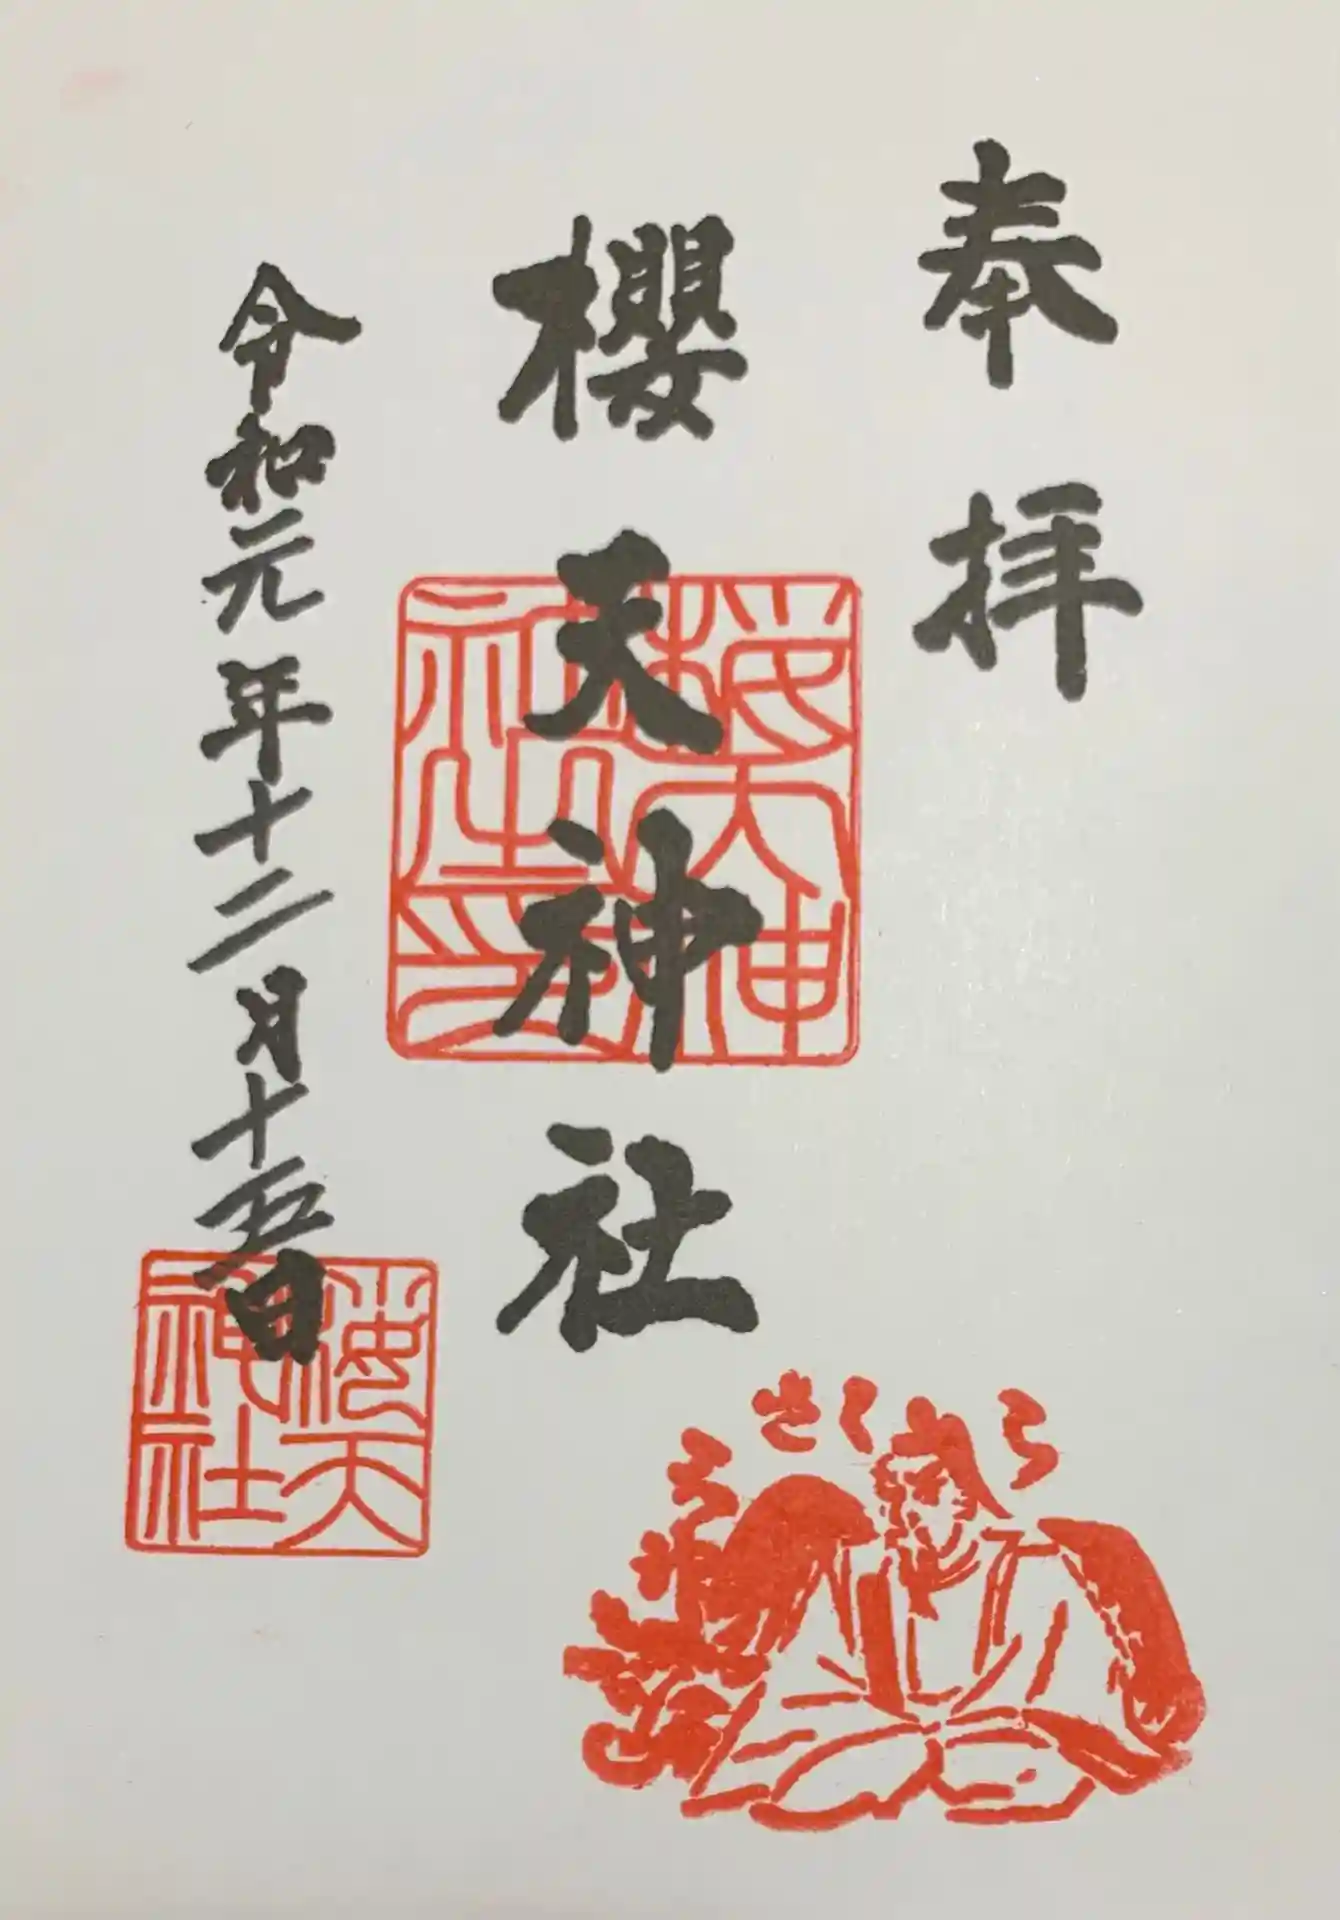 奉拝
櫻天神社
令和元年十二月十五日
桜天神社之印
桜天神社
さくら